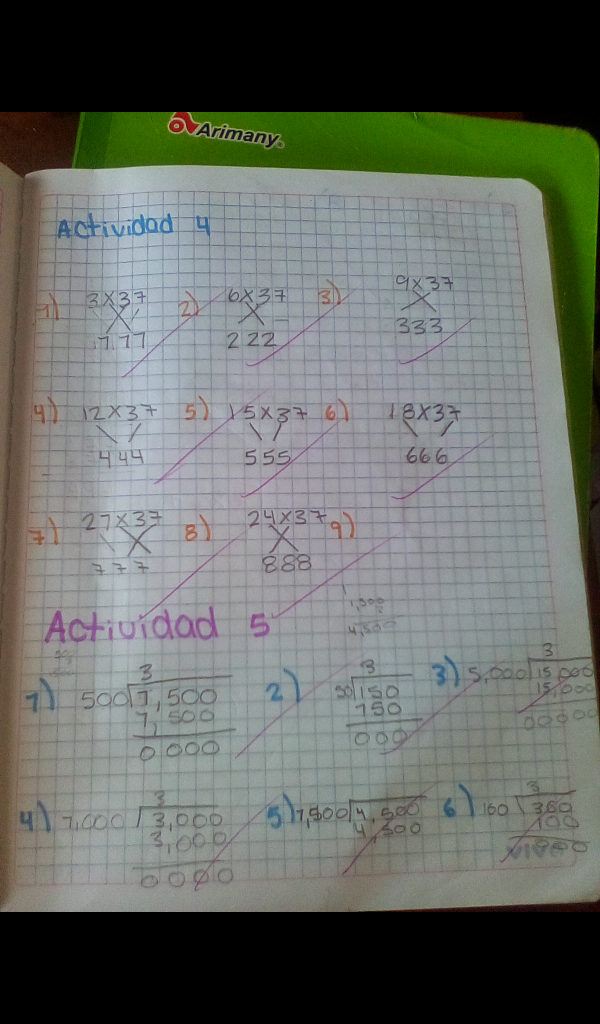 Arimany
Actividad 4
1) 3x37 2) 6x37 3) 9x37
111 222 333
4) 12x37 5) 15x37 6) 18x37
444 555 666
7) 21x37 8) 24x37 9)
777 888
Actividad 5
1,500
4,500
3 3 3
1) 500 1,500 2) 50 150 3) 5,000 15,000
1,500 150 15,000
0000 000 00000
3 3
4) 1,000 3,000 5) 1,500 4,500 6) 100 300
3,000 4,500 100
0000